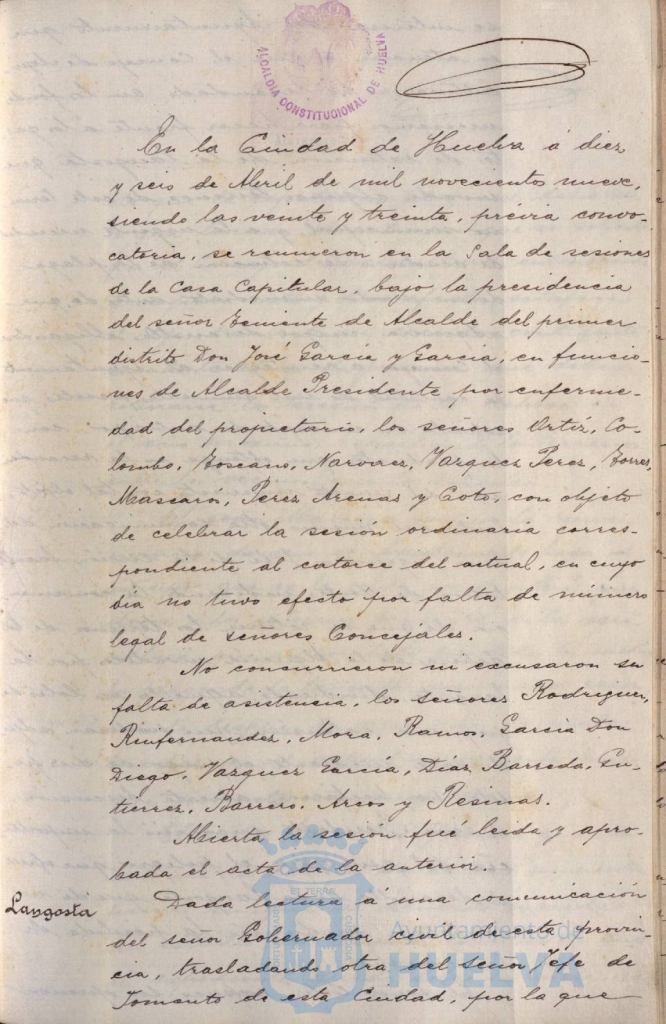 ALCALDIA CONSTITUCIONAL DE HUELVA
En la Ciudad de Huelva á diez
y seis de Abril de mil novecientos nueve,
siendo las veinte y treinta, prévia convo-
catoria, se reunieron en la Sala de sesiones
de la Casa Capitular, bajo la presidencia
del señor Teniente de Alcalde del primer
distrito Don José García y García, en funcio-
nes de Alcalde Presidente por enferme-
dad del propietario, los señores Ortíz, Co-
lombo, Toscano, Narvaez, Vazquez Perez, Torres,
Mascarós, Perez Arenas y Coto, con objeto
de celebrar la sesión ordinaria corres-
pondiente al catorce del actual, en cuyo
dia no tuvo efecto por falta de número
legal de señores Concejales.
No concurrieron ni excusaron su
falta de asistencia, los señores Rodriguez,
Rinfernandez, Mora, Ramos, García Don
Diego, Vazquez García, Díaz Barreda, Gu-
tierrez, Barrero, Arcos y Resinas.
Abierta la sesión fué leida y apro-
bada el acta de la anterior.
Langosta
Dada lectura á una comunicación
del señor Gobernador civil de esta provin-
cia, trasladando otra del señor Jefe de
Fomento de esta Ciudad, por la que
Ayuntamiento de
HUELVA